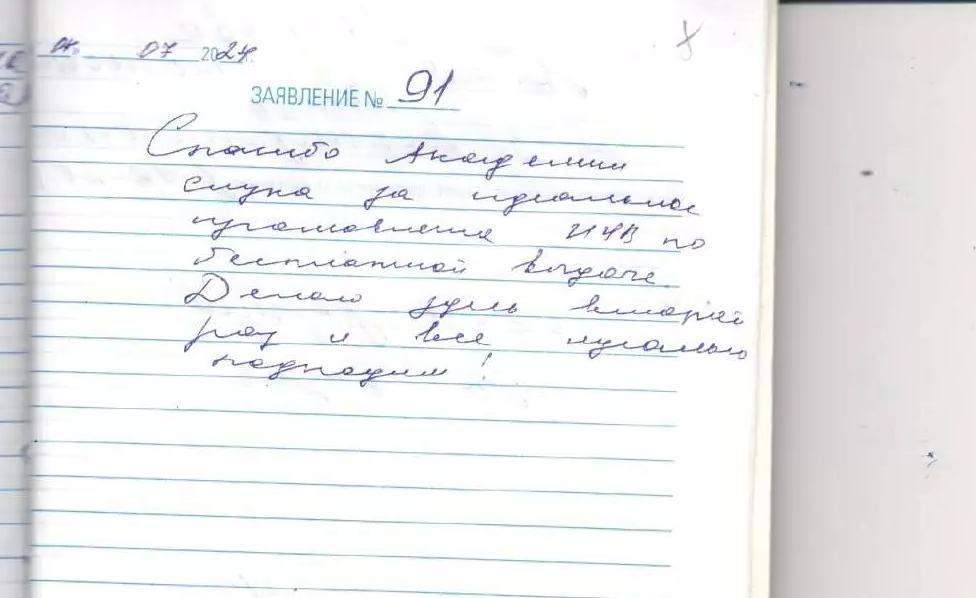 07 2024г.
ЗАЯВЛЕНИЕ № 91
Спасибо Академии
слуха за идеальное
изготовление ИЧВ по
бесплатной выдаче.
Делаю здесь второй
раз и все идеально
подходит!